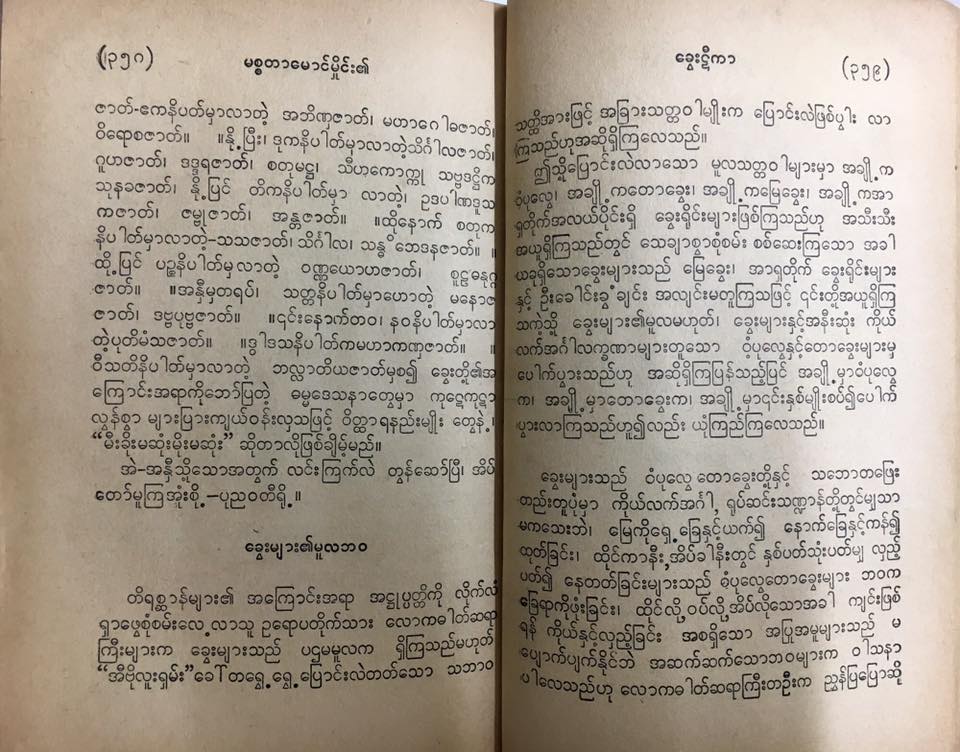 (၃၅၈)
မစ္စတာမောင်မှိုင်း၏
ဇာတ်-ဧကနိပတ်မှာလာတဲ့ အဘိဏှဇာတ်၊ မဟာဂေါဓဇာတ်၊
ဝိရောစဇာတ်။ ။နို့ပြီး၊ ဒုကနိပါတ်မှာလာတဲ့သိင်္ဂါလဇာတ်၊
ဂူဟဇာတ်၊ ဒဒ္ဒရဇာတ်၊ စတုမဋ္ဌ၊ သီဟကောက္ကု သဗ္ဗဒဋ္ဌိက
သုနခဇာတ်၊ နို့ပြင် တိကနိပါတ်မှာ လာတဲ့၊ ဥဒပါဏဒူသ
ကဇာတ်၊ ဇမ္ဗူဇာတ်၊ အန္တဇာတ်။ ။ထိုနောက် စတုက
နိပါတ်မှာလာတဲ့–သသဇာတ်၊ သိင်္ဂါလ၊ သန္ဓိဘေဒနဇာတ်။ ။
ထို့ပြင် ပဉ္စနိပါတ်မှလာတဲ့ ဝဏ္ဏယောဟဇာတ်၊ စူဠဓနုဂ္ဂ
ဇာတ်။ ။အနှီမှတရပ်၊ သတ္တနိပါတ်မှာဟောတဲ့ မနောဇ
ဇာတ်၊ ဒဗ္ဗပုဗ္ဗဇာတ်။ ။၎င်းနောက်တဝ၊ နဝနိပါတ်မှာလာ
တဲ့ပုတိမံသဇာတ်။ ။ဒွါဒသနိပါတ်ကမဟာကဏှဇာတ်။ ။
ဝီသတိနိပါတ်မှာလာတဲ့ ဘလ္လာတိယဇာတ်မှစ၍ ခွေးတို့၏အ
ကြောင်းအရာကိုဘော်ပြတဲ့ ဓမ္မဒေသနာတွေမှာ ကုဋေကုဋာ
လွန်စွာ များပြားကျယ်ဝန်းလှသဖြင့် ဝိတ္ထာရနည်းမျိုး တွေနဲ့၊
“မီးခိုးမဆုံးမိုးမဆုံး” ဆိုတာလိုဖြစ်ချိမ့်မည်။
အဲ-အနှီသို့သောအတွက် လင်းကြက်လဲ တွန်ဆော်ပြီ၊ အိပ်
တော်မူကြအုံးစို့–ပုညဝတီရို့။
ခွေးများ၏မူလဘဝ
တိရစ္ဆာန်များ၏ အကြောင်းအရာ အဋ္ဌုပ္ပတ္တိကို လိုက်လံ
ရှာဖွေစုံစမ်းလေ့လာသူ ဥရောပတိုက်သား လောကဓါတ်ဆရာ
ကြီးများက ခွေးများသည် ပဌမမူလက ရှိကြသည်မဟုတ်
“အီဗိုလူးရှမ်း” ခေါ်တရွေ့ရွေ့ပြောင်းလဲတတ်သော သဘာဝ
ခွေးဋီကာ
(၃၅၉)
သတ္ထိအားဖြင့် အခြားသတ္တဝါမျိုးက ပြောင်းလဲဖြစ်ပွါး လာ
ကြသည်ဟုအဆိုရှိကြလေသည်။
ဤသို့ပြောင်းလဲလာသော မူလသတ္တဝါများမှာ အချို့က
ဝံပုလွေ၊ အချို့ကတောခွေး၊ အချို့ကမြေခွေး၊ အချို့ကအာ
ရှတိုက်အလယ်ပိုင်းရှိ ခွေးရိုင်းများဖြစ်ကြသည်ဟု အသီးသီး
အယူရှိကြသည်တွင် သေချာစွာစုံစမ်း စစ်ဆေးကြသော အခါ
ယခုရှိသောခွေးများသည် မြေခွေး၊ အာရှတိုက် ခွေးရိုင်းများ
နှင့် ဦးခေါင်းခွံချင်း အလျင်းမတူကြသဖြင့် ၎င်းတို့အယူရှိကြ
သကဲ့သို့ ခွေးများ၏မူလမဟုတ်၊ ခွေးများနှင့်အနီးဆုံး ကိုယ်
လက်အင်္ဂါလက္ခဏာများတူသော ဝံပုလွေနှင့်တောခွေးများမှ
ပေါက်ပွားသည်ဟု အဆိုရှိကြပြန်သည့်ပြင် အချို့မှာဝံပုလွေ
က၊ အချို့မှာတောခွေးက၊ အချို့မှာ၎င်းနှစ်မျိုးစပ်၍ပေါက်
ပွားလာကြသည်ဟူ၍လည်း ယုံကြည်ကြလေသည်။
ခွေးများသည် ဝံပုလွေ တောခွေးတို့နှင့် သဘောတဖြေး
တည်းတူပုံမှာ ကိုယ်လက်အင်္ဂါ, ရုပ်ဆင်းသဏ္ဍာန်တို့တွင်မျှသာ
မကသေးဘဲ၊ မြေကိုရှေ့ခြေနှင့်ယက်၍ နောက်ခြေနှင့်ကန်၍
ထုတ်ခြင်း၊ ထိုင်ကာနီး, အိပ်ခါနီးတွင် နှစ်ပတ်သုံးပတ်မျှ လှည့်
ပတ်၍ နေတတ်ခြင်းများသည် ဝံပုလွေတောခွေးများ ဘဝက
ခြေရာကိုဖုံးခြင်း၊ ထိုင်လို့ ဝပ်လို့ အိပ်လိုသောအခါ ကျင်းဖြစ်
ရန် ကိုယ်နှင့်လှည့်ခြင်း အစရှိသော အပြုအမူများသည် မ
ပျောက်ပျက်နိုင်ဘဲ အဆက်ဆက်သောဘဝများက ဝါသနာ
ပါလေသည်ဟု လောကဓါတ်ဆရာကြီးတဦးက ညွှန်ပြပြောဆို